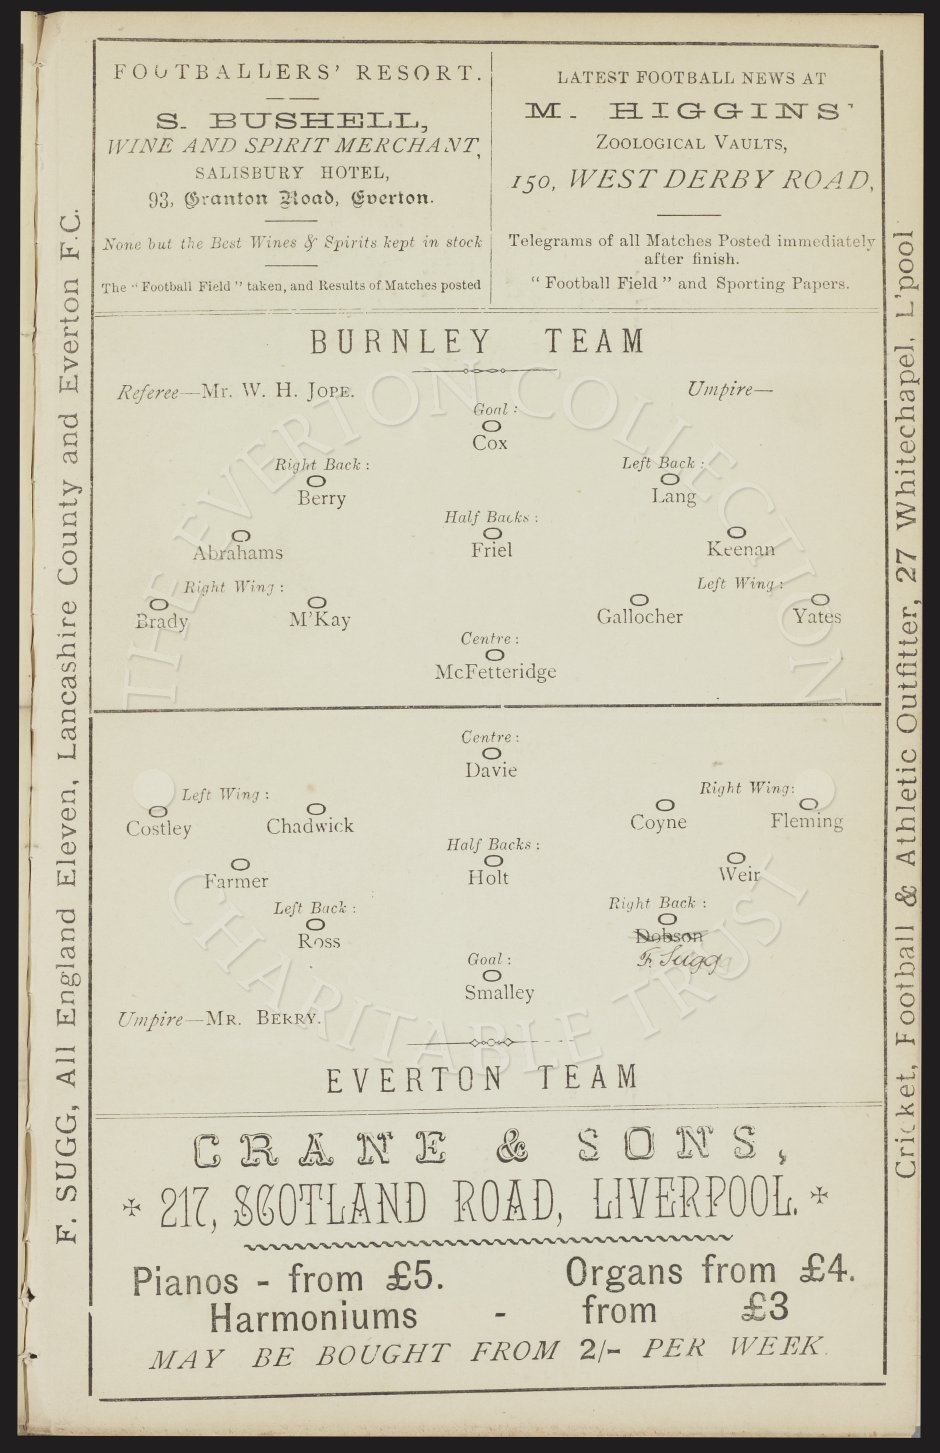 FOOTBALLERS' RESORT.
S. BUSHELL,
WINE AND SPIRIT MERCHANT,
SALISBURY HOTEL,
93, Granton Road, Everton.
None but the Best Wines & Spirits kept in stock
The "Football Field" taken, and Results of Matches posted
LATEST FOOTBALL NEWS AT
M. HIGGINS'
ZOOLOGICAL VAULTS,
150, WEST DERBY ROAD,
Telegrams of all Matches Posted immediately
after finish.
"Football Field" and Sporting Papers.
F. SUGG, All England Eleven, Lancashire County and Everton F.C.
BURNLEY TEAM
Referee—Mr. W. H. JOPE. Umpire—
Goal:
Cox
Right Back: Left Back:
Berry Lang
Half Backs:
Abrahams Friel Keenan
Right Wing: Left Wing:
Brady M'Kay Gallocher Yates
Centre:
McFetteridge
Centre:
Davie
Left Wing: Right Wing:
Costley Chadwick Coyne Fleming
Half Backs:
Farmer Holt Weir
Left Back: Right Back:
Ross Dobson
F. Sugg
Goal:
Smalley
Umpire—MR. BERRY.
EVERTON TEAM
CRANE & SONS,
217, SCOTLAND ROAD, LIVERPOOL.
Pianos - from £5. Organs from £4.
Harmoniums - from £3
MAY BE BOUGHT FROM 2/- PER WEEK.
Cricket, Football & Athletic Outfitter, 27 Whitechapel, L'pool
THE EVERTON COLLECTION
CHARITABLE TRUST